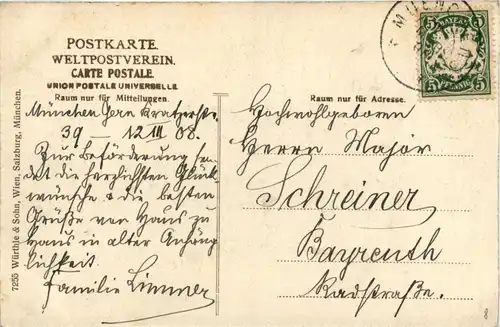 POSTKARTE.
WELTPOSTVEREIN.
CARTE POSTALE.
UNION POSTALE UNIVERSELLE.
Raum nur für Mitteilungen.
München Gern Kratzerstr.
39 – 12 III 08.
Zur Beförderung sen-
det die herzlichsten Glück-
wünsche & die besten
Grüße von Haus zu
Haus in alter Anhäng-
lichkeit.
Familie Limmer
7255 Würthle & Sohn, Wien, Salzburg, München.
Raum nur für Adresse.
Hochwohlgeboren
Herrn Major
Schreiner
Bayreuth
Radstraße.
BAYERN
5 5
PFENNIG
8